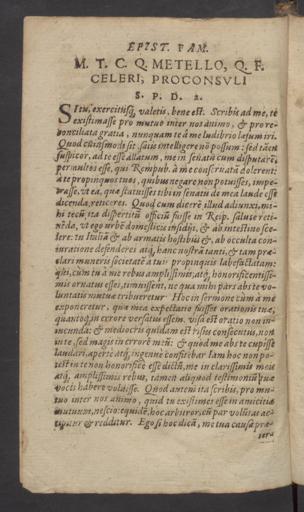 EPIST. FAM.
M. T. C. Q. METELLO, Q. F.
CELERI, PROCONSVLI
S. P. D. 2.
SI tu, exercitusq; valetis, bene est. Scribis ad me, te
existimasse pro mutuo inter nos animo, & pro re-
conciliata gratia, nunquam te à me ludibrio læsum iri.
Quod cuiusmodi sit, satis intelligere nõ possum: sed tamẽ
suspicor, ad te esse allatum, me in senatu cum disputarẽ,
permultos esse, qui Rempub. à me conseruatã dolerent:
à te propinquos tuos, quibus negare non potuisses, impe-
trasse, vt ea, quæ statuisses tibi in senatu de mea laude esse
dicenda, reticeres. Quod cum dicerẽ illud adiunxi, mi-
hi tecũ ita dispertitũ officiũ fuisse in Reip. salute reti-
nẽda, vt ego urbẽ à domesticis insidijs, & ab intestino sce-
lere: tu Italiã & ab armatis hostibus, & ab occulta con-
iuratione defenderes: atq; hanc nostrã tanti, & tam præ-
clari muneris societatẽ à tuis propinquis labefactatam:
qui, cùm tu à me rebus amplissimis, atq; honorificentissi-
mis ornatus esses, timuissent, ne qua mihi pars abs te vo-
luntatis mutuæ tribueretur. Hoc in sermone cùm à me
exponeretur, quæ mea expectatio fuisset orationis tuæ,
quantoq; in errore versatus essem: visa est oratio non in-
iucunda: & mediocris quidam est risus consecutus, non
in te, sed magis in errorẽ meũ: & quod me abs te cupisse
laudari, apertè atq; ingenuè confitebar. Iam hoc non po-
test in te non honorificè esse dictũ, me in clarissimis meis
atq; amplissimis rebus, tamen aliquod testimoniũ tuæ
vocis habere voluisse. Quod autem ita scribis, pro mu-
tuo inter nos animo, quid tu existimes esse in amicitia
mutuum, nescio: equidẽ, hoc arbitror, cũ par voluntas ac-
cipitur & redditur. Ego si hoc dicã, me tua causa præ-